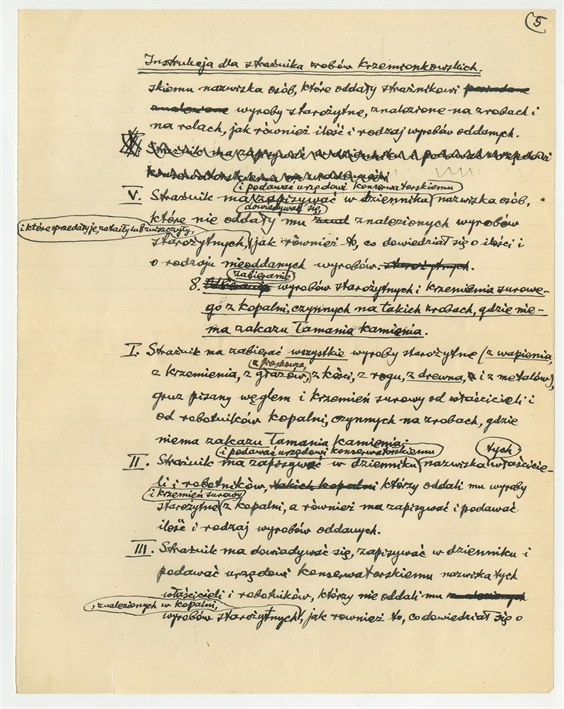 5
Instrukcja dla strażnika zrobów krzemionkowskich.
skiemu nazwiska osób, które oddały strażnikowi
wyroby starożytne, znalezione na zrobach i
na rolach, jak również ilość i rodzaj wyrobów oddanych.
Strażnik ma zapisywać w dzienniku i podawać urzędowi
konserwatorskiemu
i podawać urzędowi konserwatorskiemu
V. Strażnik ma zapisywać w dzienniku nazwiska osób,
dowiadywać się,
które nie oddały mu znalezionych wyrobów
i które sprzedały je, zataiły lub zniszczyły,
starożytnych, jak również to, co dowiedział się o ilości i
o rodzaju nieoddanych wyrobów starożytnych.
zabieranie
8. wyrobów starożytnych i krzemienia surowe-
go z kopalni, czynnych na takich zrobach, gdzie nie-
ma zakazu łamania kamienia.
I. Strażnik ma zabierać wszystkie wyroby starożytne (z wapienia,
z piaskowca,
z krzemienia, z głazów, z kości, z rogu, z drewna, i z metalów)
gruz pisany węglem i krzemień surowy od właścicieli i
od robotników kopalni, czynnych na zrobach, gdzie
niema zakazu łamania kamienia;
i podawać urzędowi konserwatorskiemu
tych
II. Strażnik ma zapisywać w dzienniku nazwiska właścicie-
li i robotników, takich kopalni którzy oddali mu wyroby
i krzemień surowy
starożytne z kopalni, a również ma zapisywać i podawać
ilość i rodzaj wyrobów oddanych.
III. Strażnik ma dowiadywać się, zapisywać w dzienniku i
podawać urzędowi konserwatorskiemu nazwiska tych
właścicieli i robotników, którzy nie oddali mu znalezionych
, znalezionych w kopalni,
wyrobów starożytnych, jak również to, co dowiedział się o